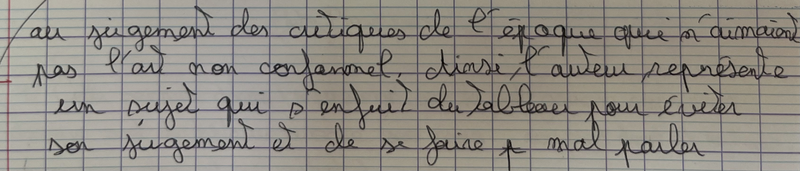 au jugement des critiques de l'époque qui n'aimaient
pas l'art non conformel. Ainsi, l'auteur représente
un sujet qui s'enfuit du tableau pour éviter
son jugement et de se faire mal parler